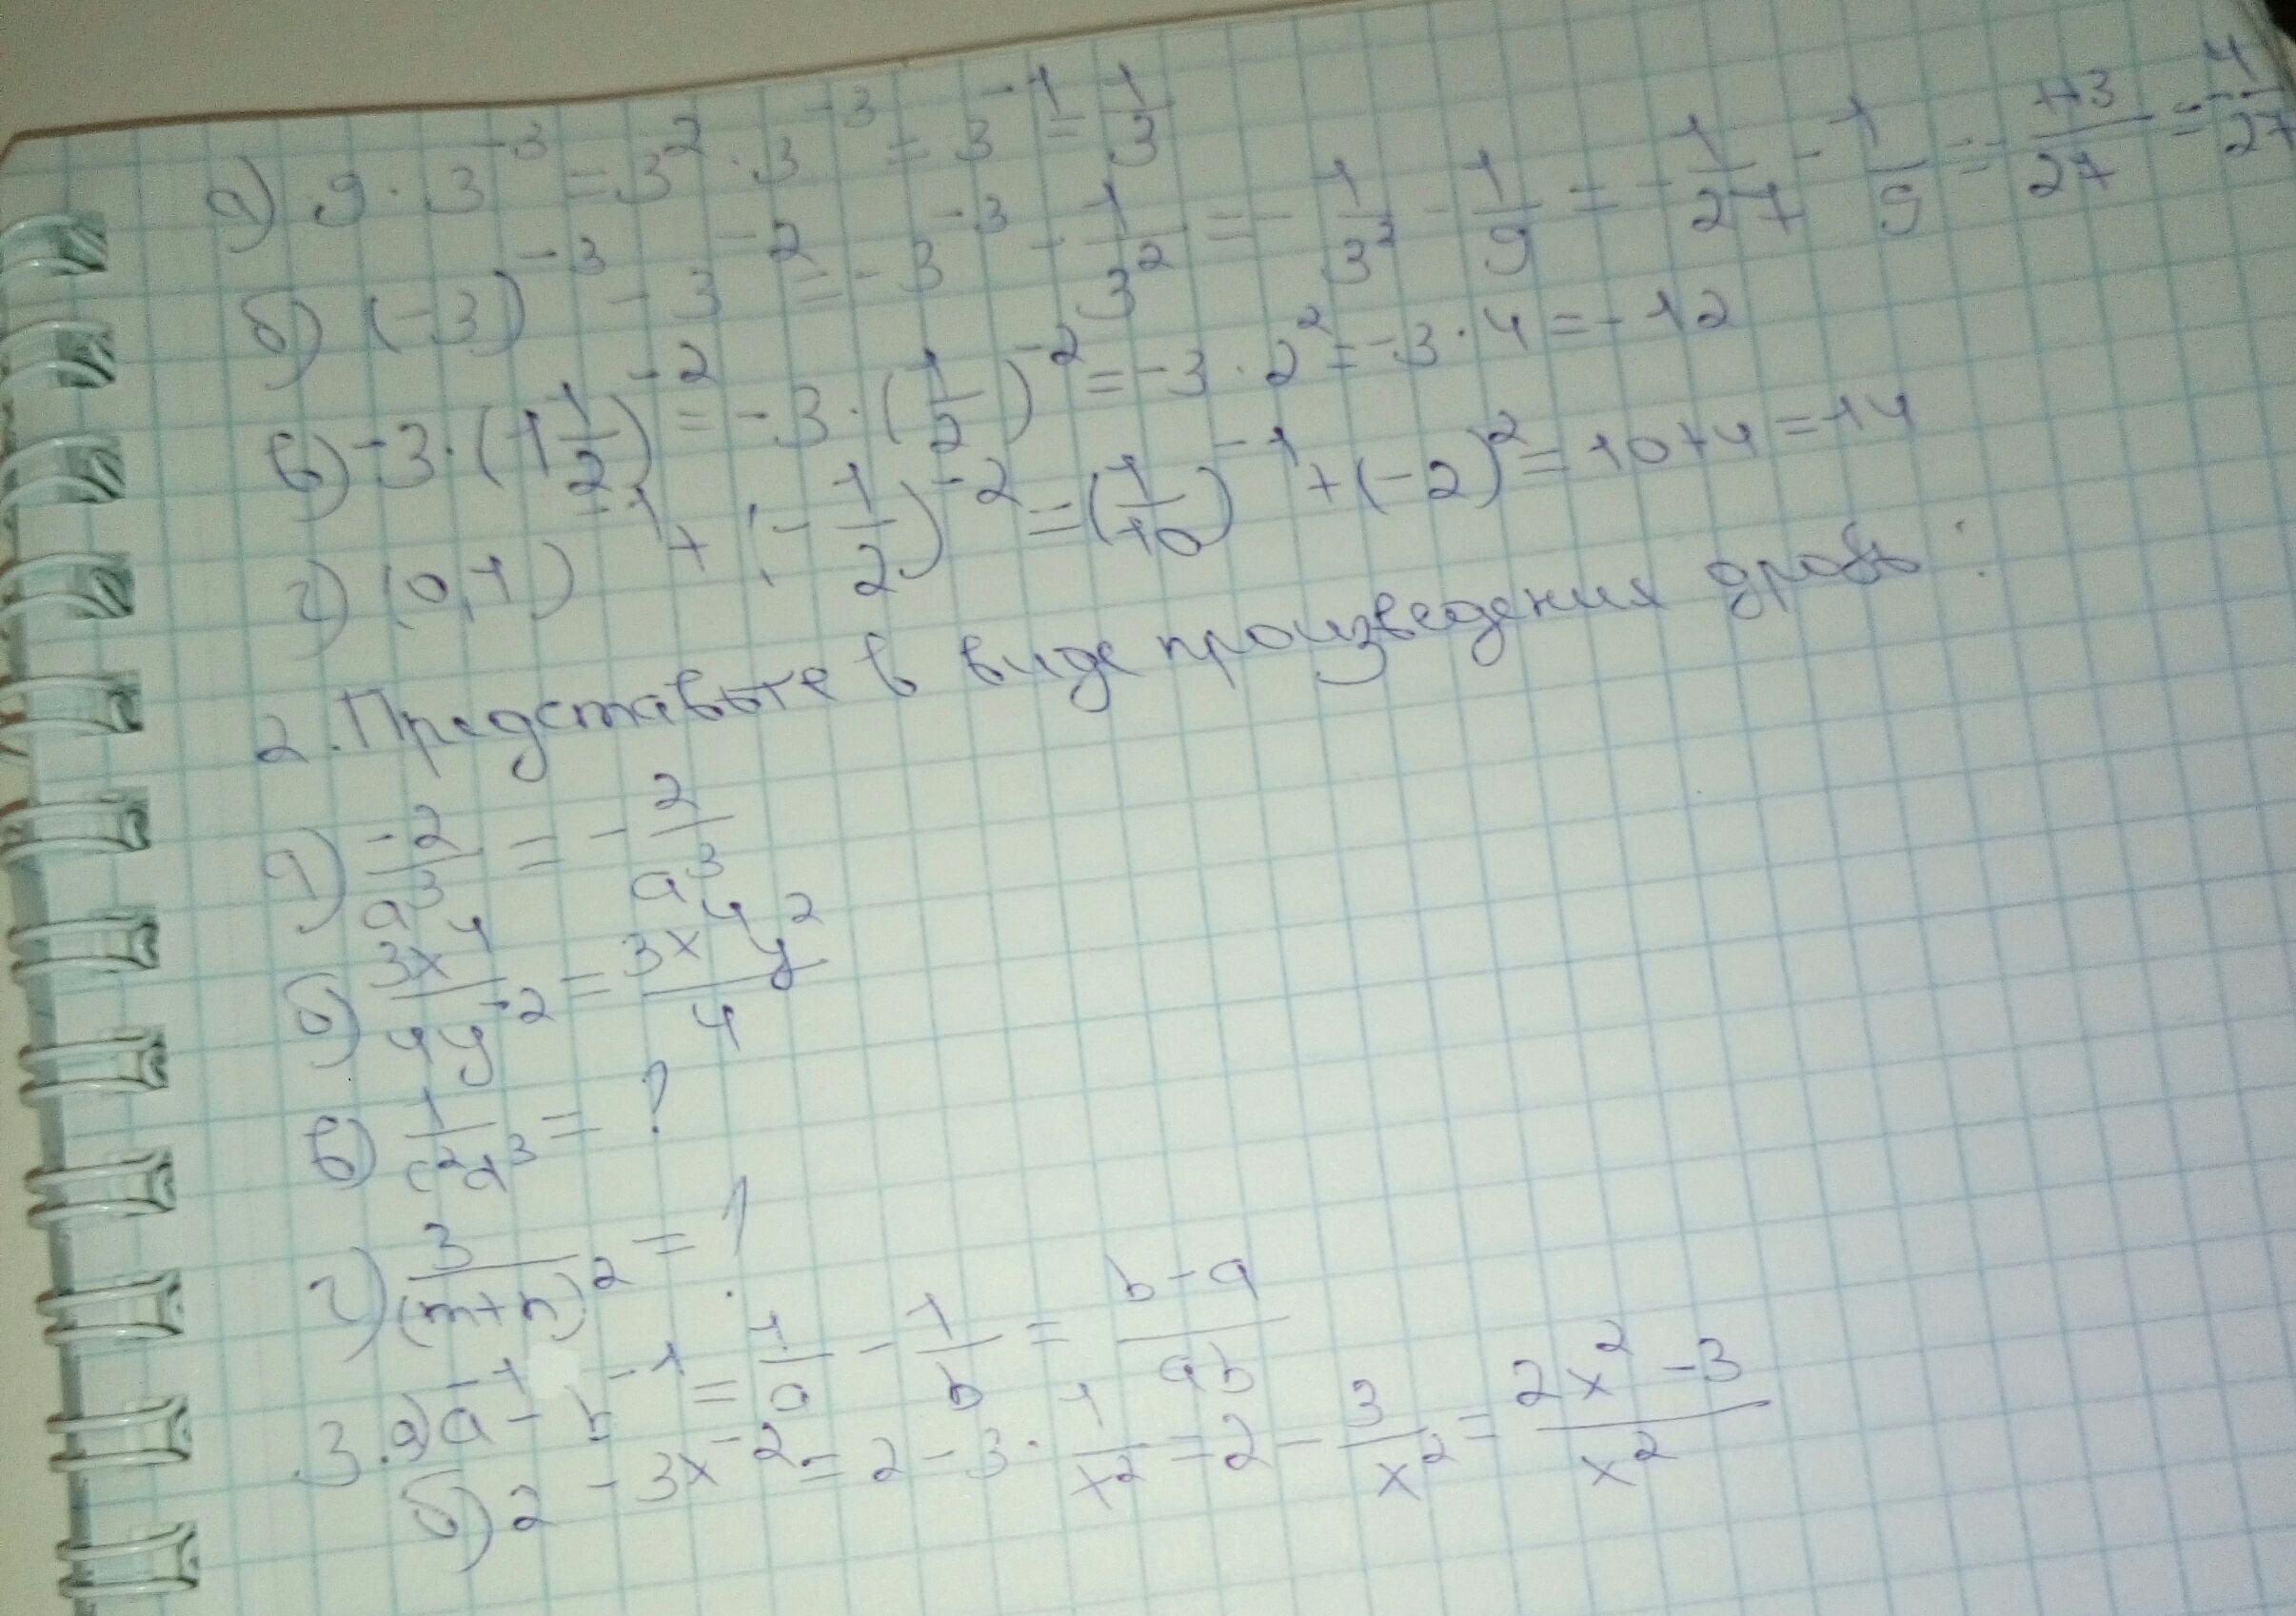 а) 9 · 3⁻³ = 3² · 3⁻³ = 3⁻¹ = 1/3
б) (-3)⁻³ - 3⁻² = -3⁻³ - 1/3² = - 1/3² - 1/9 = - 1/27 - 1/9 = - 1+3/27 = - 4/27
в) -3 · (1 1/2)⁻² = -3 · (1/2)⁻² = -3 · 2² = -3 · 4 = -12
г) (0,1)⁻¹ + (- 1/2)⁻² = (1/10)⁻¹ + (-2)² = 10+4 = 14
2. Представьте в виде произведения дробь:
а) -2/a³ = - 2/a³
б) 3x⁴/4y⁻² = 3x⁴y²/4
в) 1/c²d³ = ?
г) 3/(m+n)² = ?
3. а) a⁻¹ - b⁻¹ = 1/a - 1/b = b-a/ab
б) 2 - 3x⁻² = 2 - 3 · 1/x² = 2 - 3/x² = 2x² - 3/x²